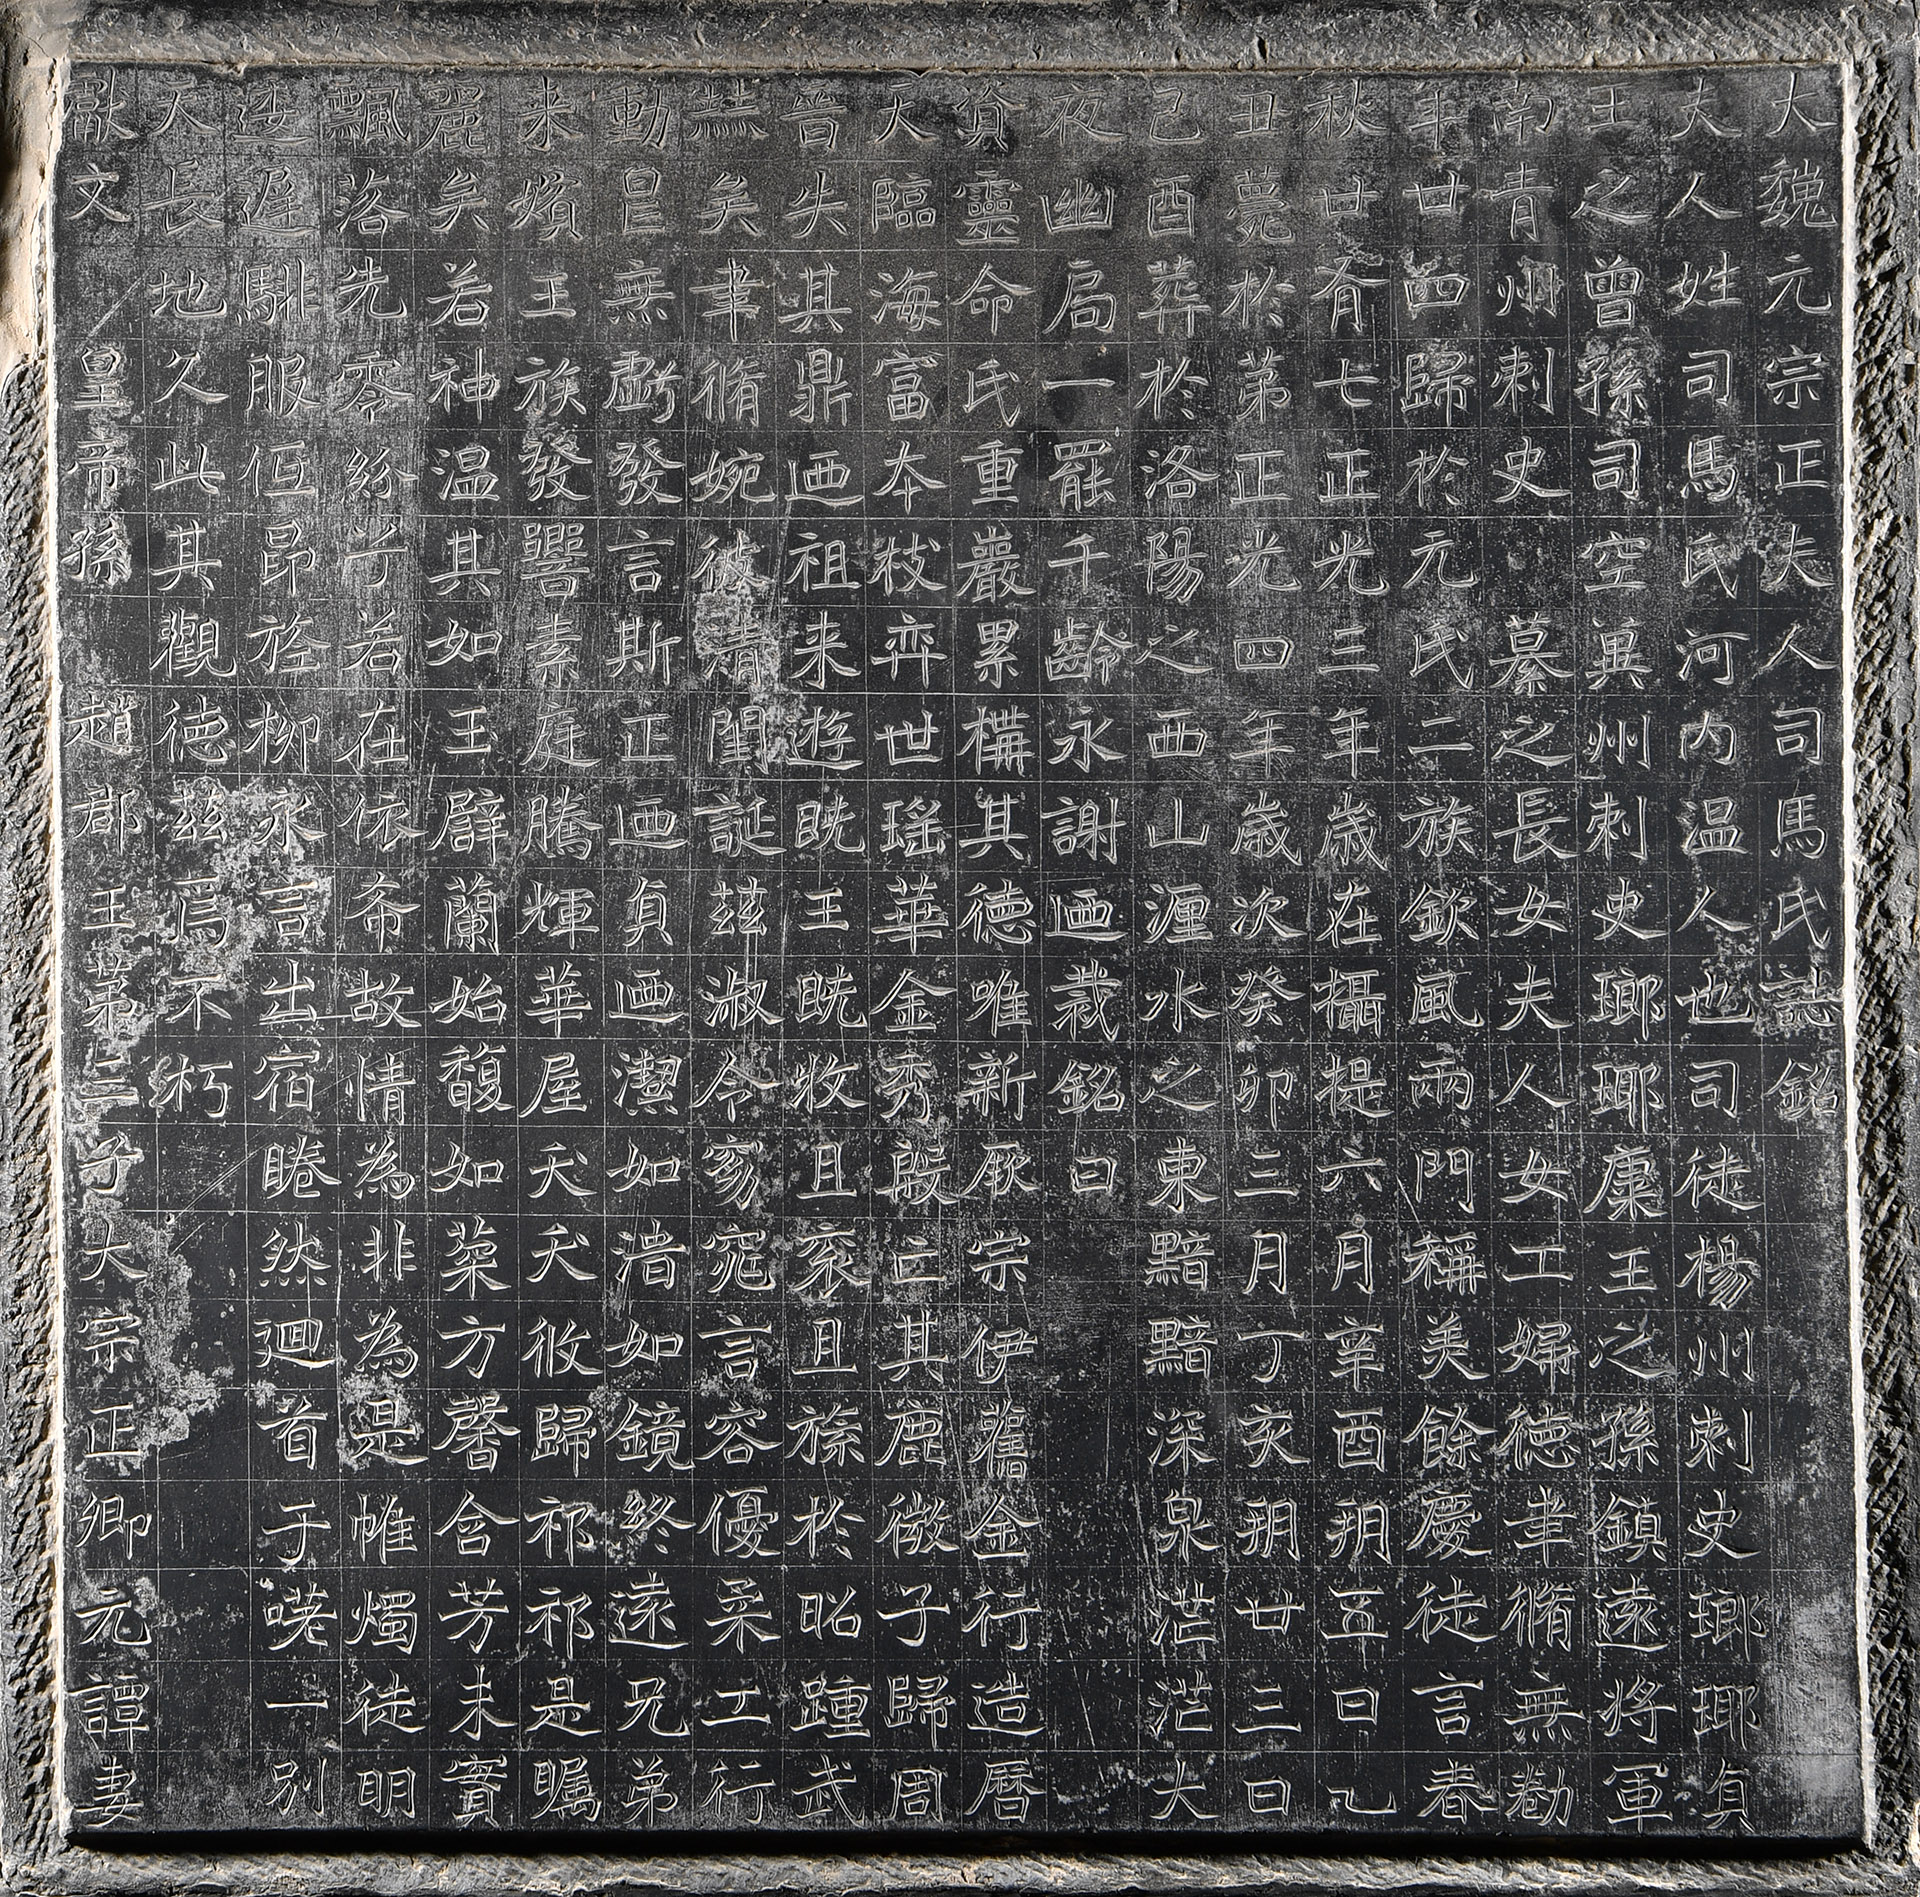 大魏元宗正夫人司馬氏誌銘
夫人姓司馬氏河内温人也司徒楊州刺史瑯琊貞
王之曾孫司空兾州刺史瑯琊康王之孫鎮遠將軍
南青州刺史纂之長女夫人女工婦徳聿脩無勸
年廿四歸於元氏二族欽風兩門稱美餘慶徒言春
秋廿有七正光三年歲在攝提六月辛酉朔五日乙
丑薨於第正光四年歲次癸卯三月丁亥朔廿三日
己酉葬於洛陽之西山瀍水之東黯黯深泉茫茫大
夜幽局一罷千齡永謝迺裁銘曰
資靈命氏重巖累構其德唯新厥宗伊舊金行造曆
天臨海富本枝弈世瑤華金秀殷亡其鹿微子歸周
晉失其鼎迺祖来遊既王既牧且衮且旒於昭踵武
赫矣聿脩婉彼清閨誕茲淑令窈窕言容優柔工行
動㠯無虧發言斯正迺貞迺潔如如鏡終遠兄弟
来嬪王族發響素庭騰輝華屋夭夭攸歸祁祁是矚
麗矣若神温其如玉辟蘭始馥如菜方馨含芳未實
飄落先零紛兮若在依希故情為非為是帷燭徒明
逶遲騑服低昂旌柳永言出宿睠然迴首于嗟一別
天長地久此其觀徳茲焉不朽
獻文皇帝孫趙郡王第三子大宗正卿元譚妻